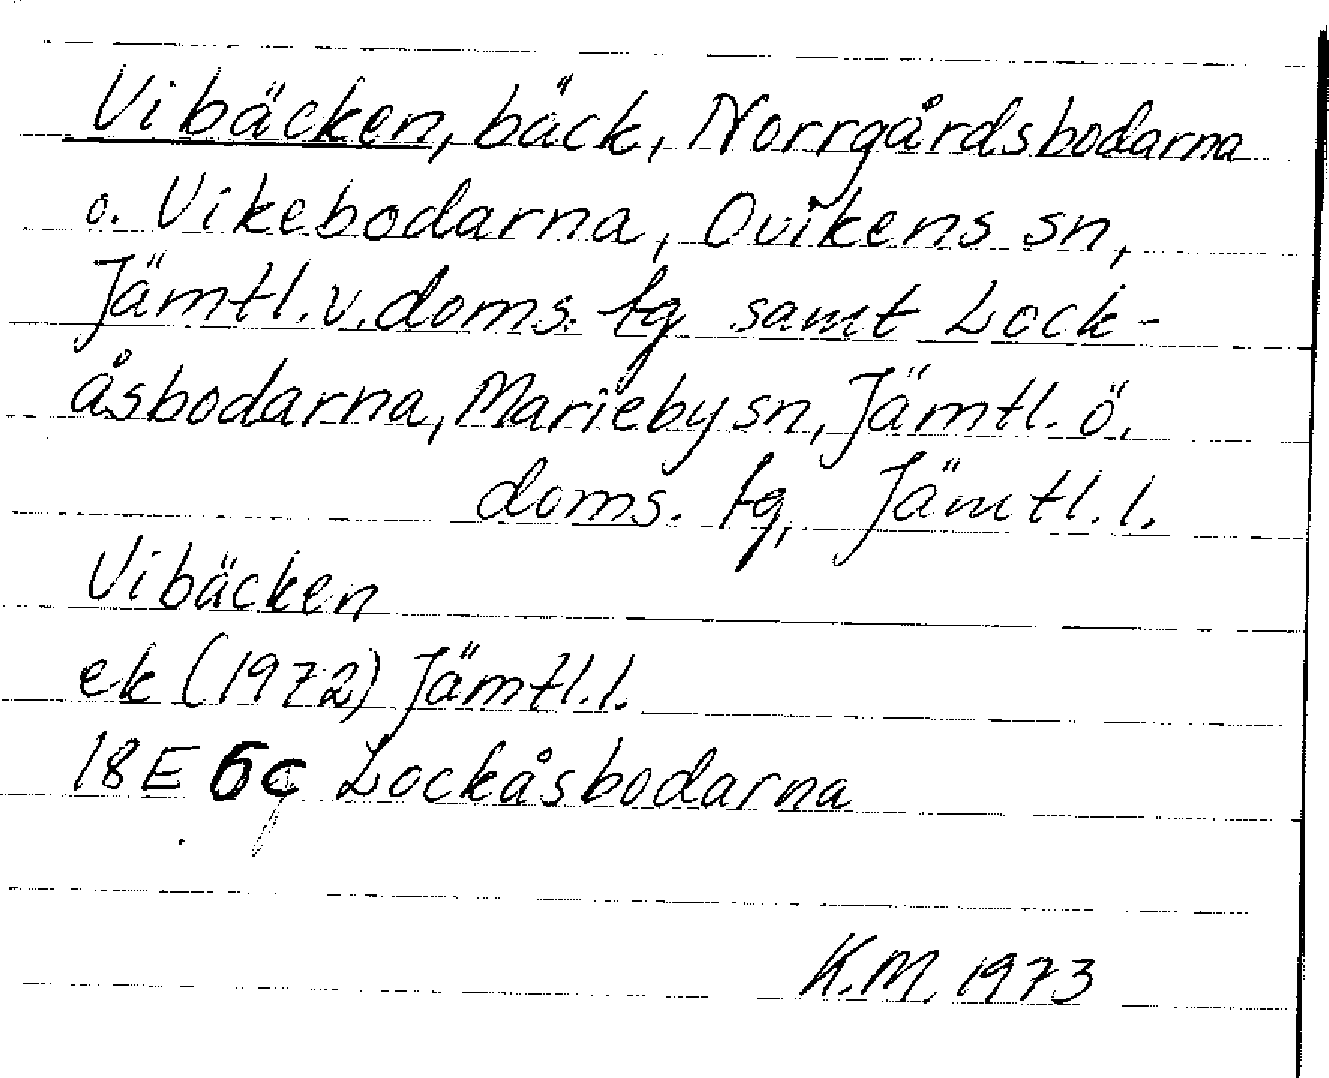 Vibäcken, bäck, Norrgårdsbodarna
o. Vikebodarna, Ovikens sn,
Jämtl. v. doms. tg samt Lock-
åsbodarna, Marieby sn, Jämtl. ö.
doms. tg, Jämtl. l.
Vibäcken
ek (1972) Jämtl. l.
18E 6c Lockåsbodarna
K.M. 1973